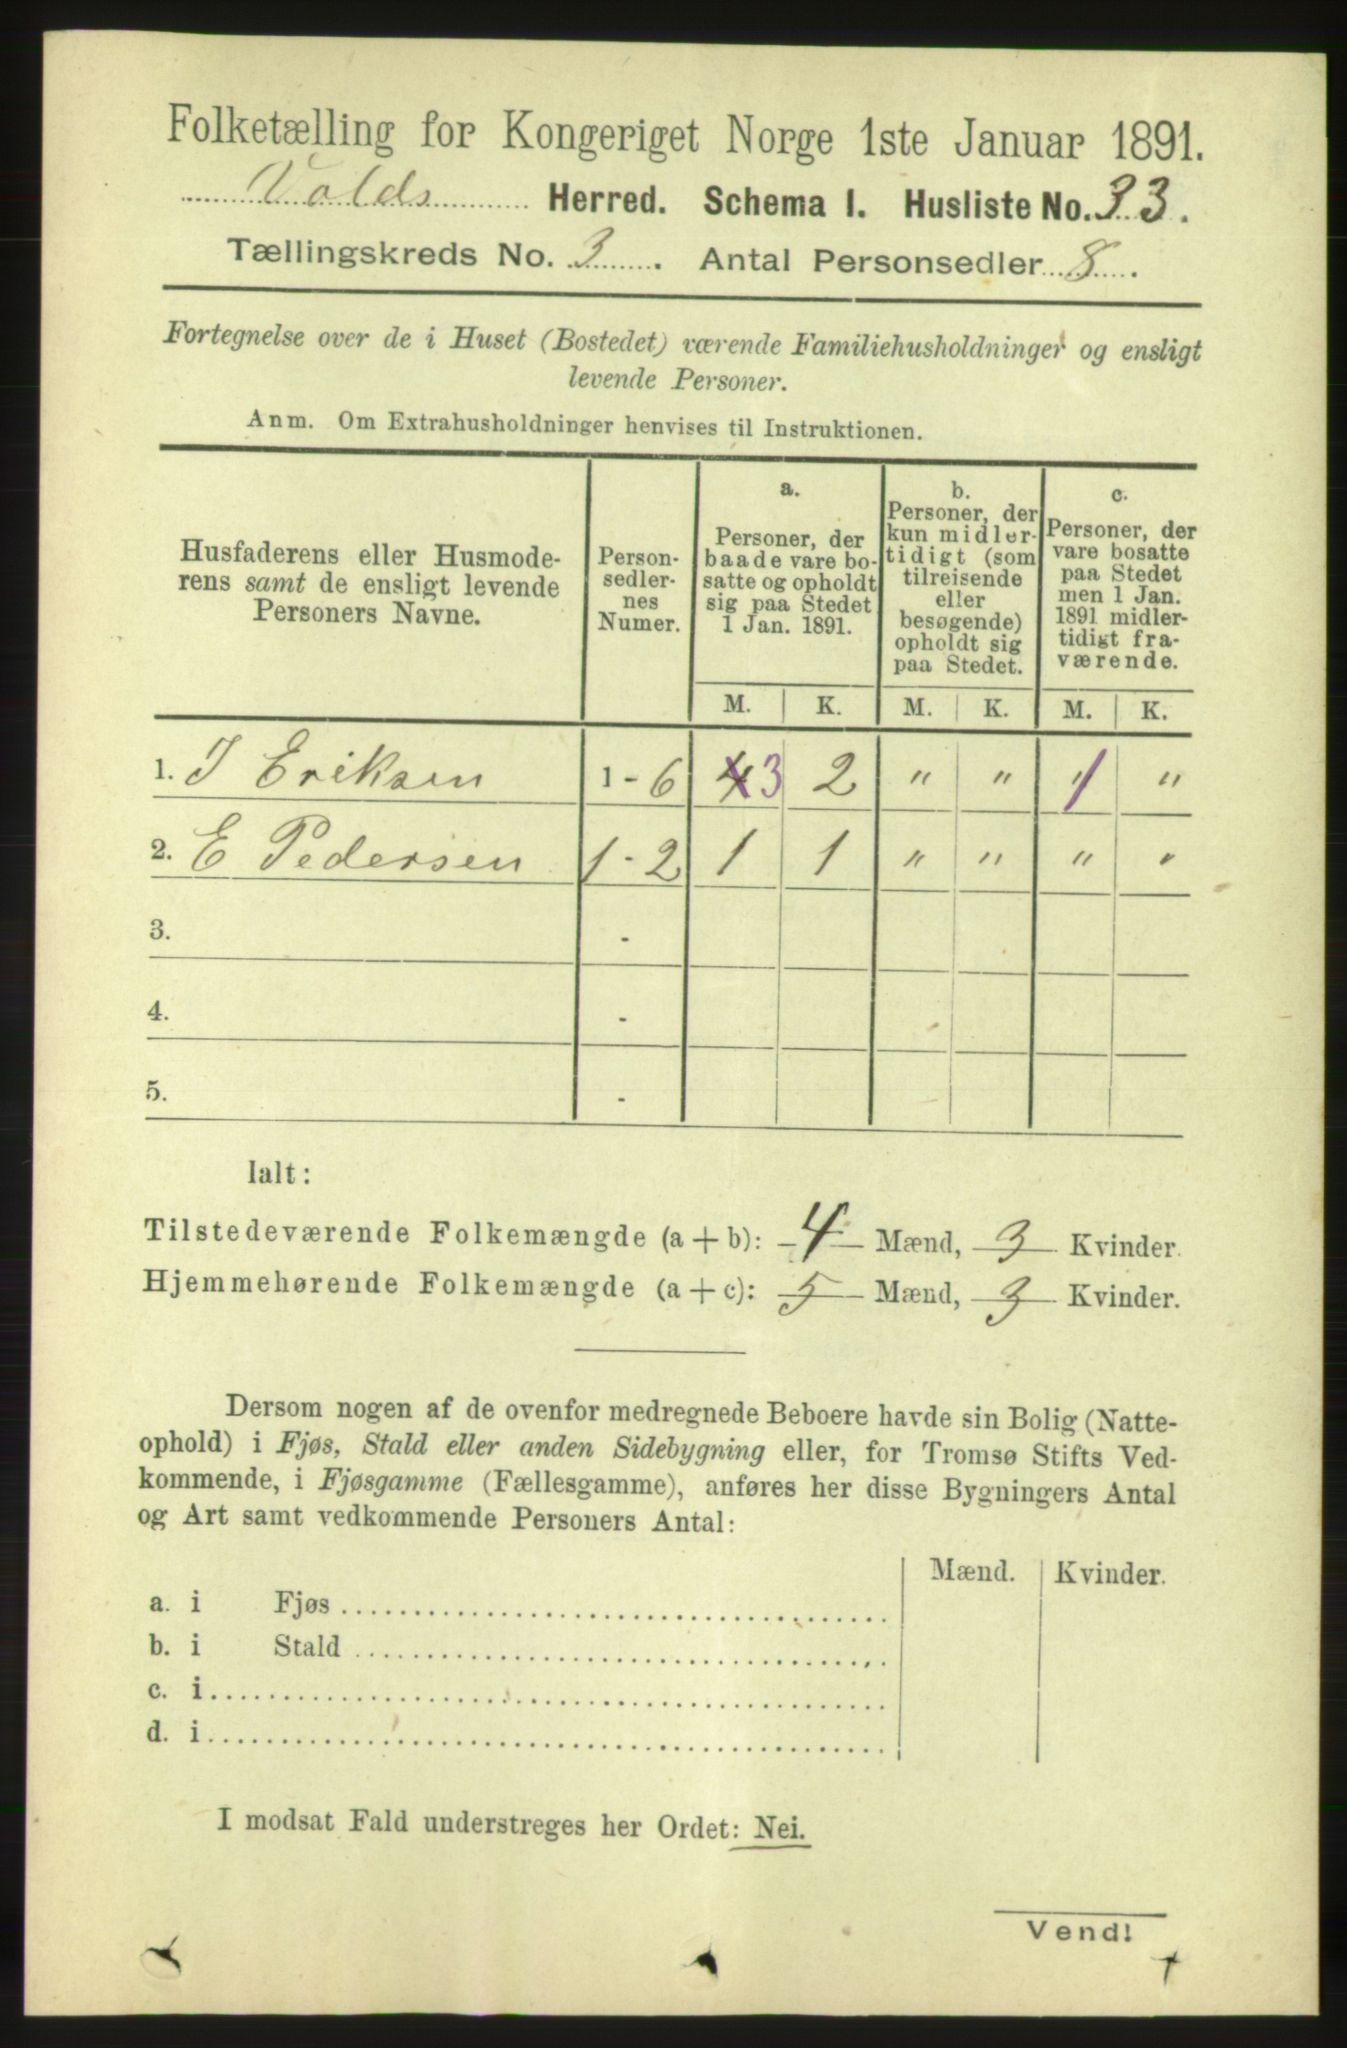 Folketælling for Kongeriget Norge 1ste Januar 1891.
Volds Herred. Schema I. Husliste No. 33.
Tællingskreds No. 3. Antal Personsedler 8.
Fortegnelse over de i Huset (Bostedet) værende Familiehusholdninger og ensligt
levende Personer.
Anm. Om Extrahusholdninger henvises til Instruktionen.
Husfaderens eller Husmode-
rens samt de ensligt levende
Personers Navne.
Person-
sedler-
nes
Numer.
a.
Personer, der
baade vare bo-
satte og opholdt
sig paa Stedet
1 Jan. 1891.
b.
Personer, der
kun midler-
tidigt (som
tilreisende
eller
besøgende)
opholdt sig
paa Stedet.
c.
Personer, der
vare bosatte
paa Stedet
men 1 Jan.
1891 midler-
tidigt fra-
værende.
M. K. M. K. M. K.
1. J Eriksen 1-6 4 3 2 " " 1 "
2. E Pedersen 1-2 1 1 " " " "
3. -
4. -
5. -
Ialt:
Tilstedeværende Folkemængde (a+b): 4 Mænd, 3 Kvinder.
Hjemmehørende Folkemængde (a+c): 5 Mænd, 3 Kvinder.
Dersom nogen af de ovenfor medregnede Beboere havde sin Bolig (Natte-
ophold) i Fjøs, Stald eller anden Sidebygning eller, for Tromsø Stifts Ved-
kommende, i Fjøsgamme (Fællesgamme), anføres her disse Bygningers Antal
og Art samt vedkommende Personers Antal:
Mænd. Kvinder.
a. i Fjøs
b. i Stald
c. i
d. i
I modsat Fald understreges her Ordet: Nei.
Vend!